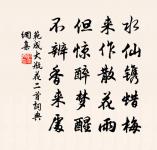 水仙镌蜡梅
来作散花雨
但惊醉梦醒
不辨香来處
范成大瓶花二首詞典
網集